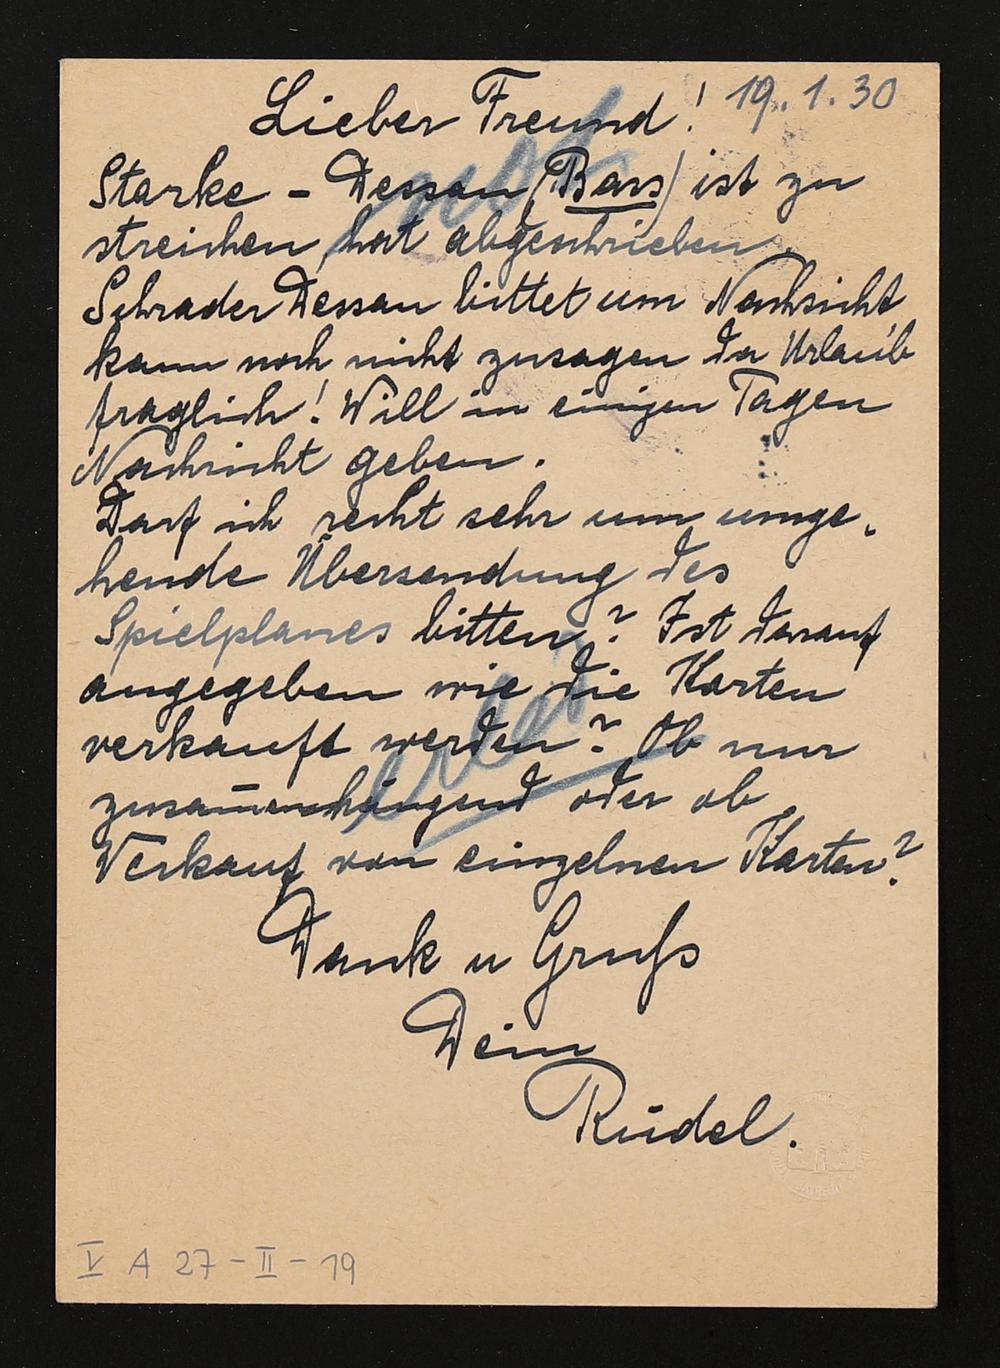 Lieber Freund! 19.1.30
Starke - Dessau (Bass) ist zu
streichen, hat abgeschrieben.
Schrader Dessau bittet um Nachsicht
kann noch nicht zusagen da Urlaub
fraglich! Will in einigen Tagen
Nachricht geben.
Darf ich recht sehr um umge-
hende Übersendung des
Spielplanes bitten? Ist darauf
angegeben wie die Karten
verkauft werden? Ob nur
zusam̅enhängend oder ob
Verkauf von einzelnen Karten?
Dank u Gruß
Dein
Rüdel.
V A 27-II-19